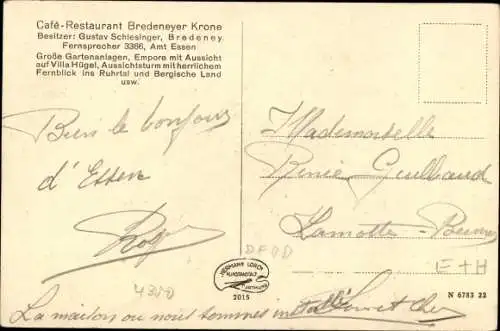 Café-Restaurant Bredeneyer Krone
Besitzer: Gustav Schlesinger, Bredeney
Fernsprecher 3366, Amt Essen
Große Gartenanlagen, Empore mit Aussicht
auf Villa Hügel, Aussichtsturm mit herrlichem
Fernblick ins Ruhrtal und Bergische Land
usw.
Bien le bonjour
d'Essen
Mademoiselle
Renée Guilbaud
Lamotte-
DFOD
E+H
4300
HERMANN LORCH
KUNSTANSTALT
DORTMUND
2015
N 6783 22
La maison ou nous sommes